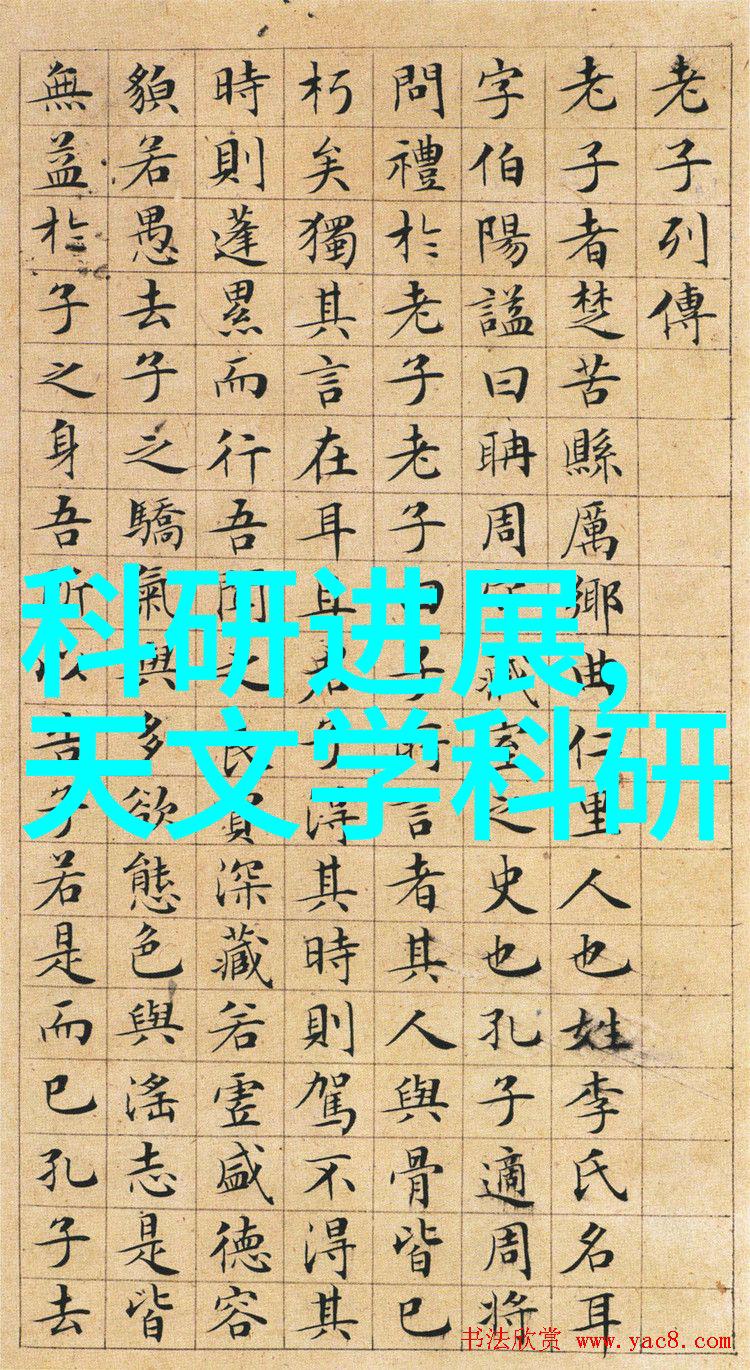 老子列傳
老子者楚苦縣厲鄉曲仁里人也姓李氏名耳
字伯陽謚曰聃周藏室之史也孔子適周將
問禮於老子老子曰子所言者其人與骨皆已
朽矣獨其言在耳且君子得其時則駕不得其
時則蓬累而行吾聞之良賈深藏若虛盛德容
䫉若愚去子之驕氣與多欲態色與淫志是皆
無益於子之身吾所以告子若是而已孔子去
科研进展,
天文学科研
书法欣赏 www.yac8.com